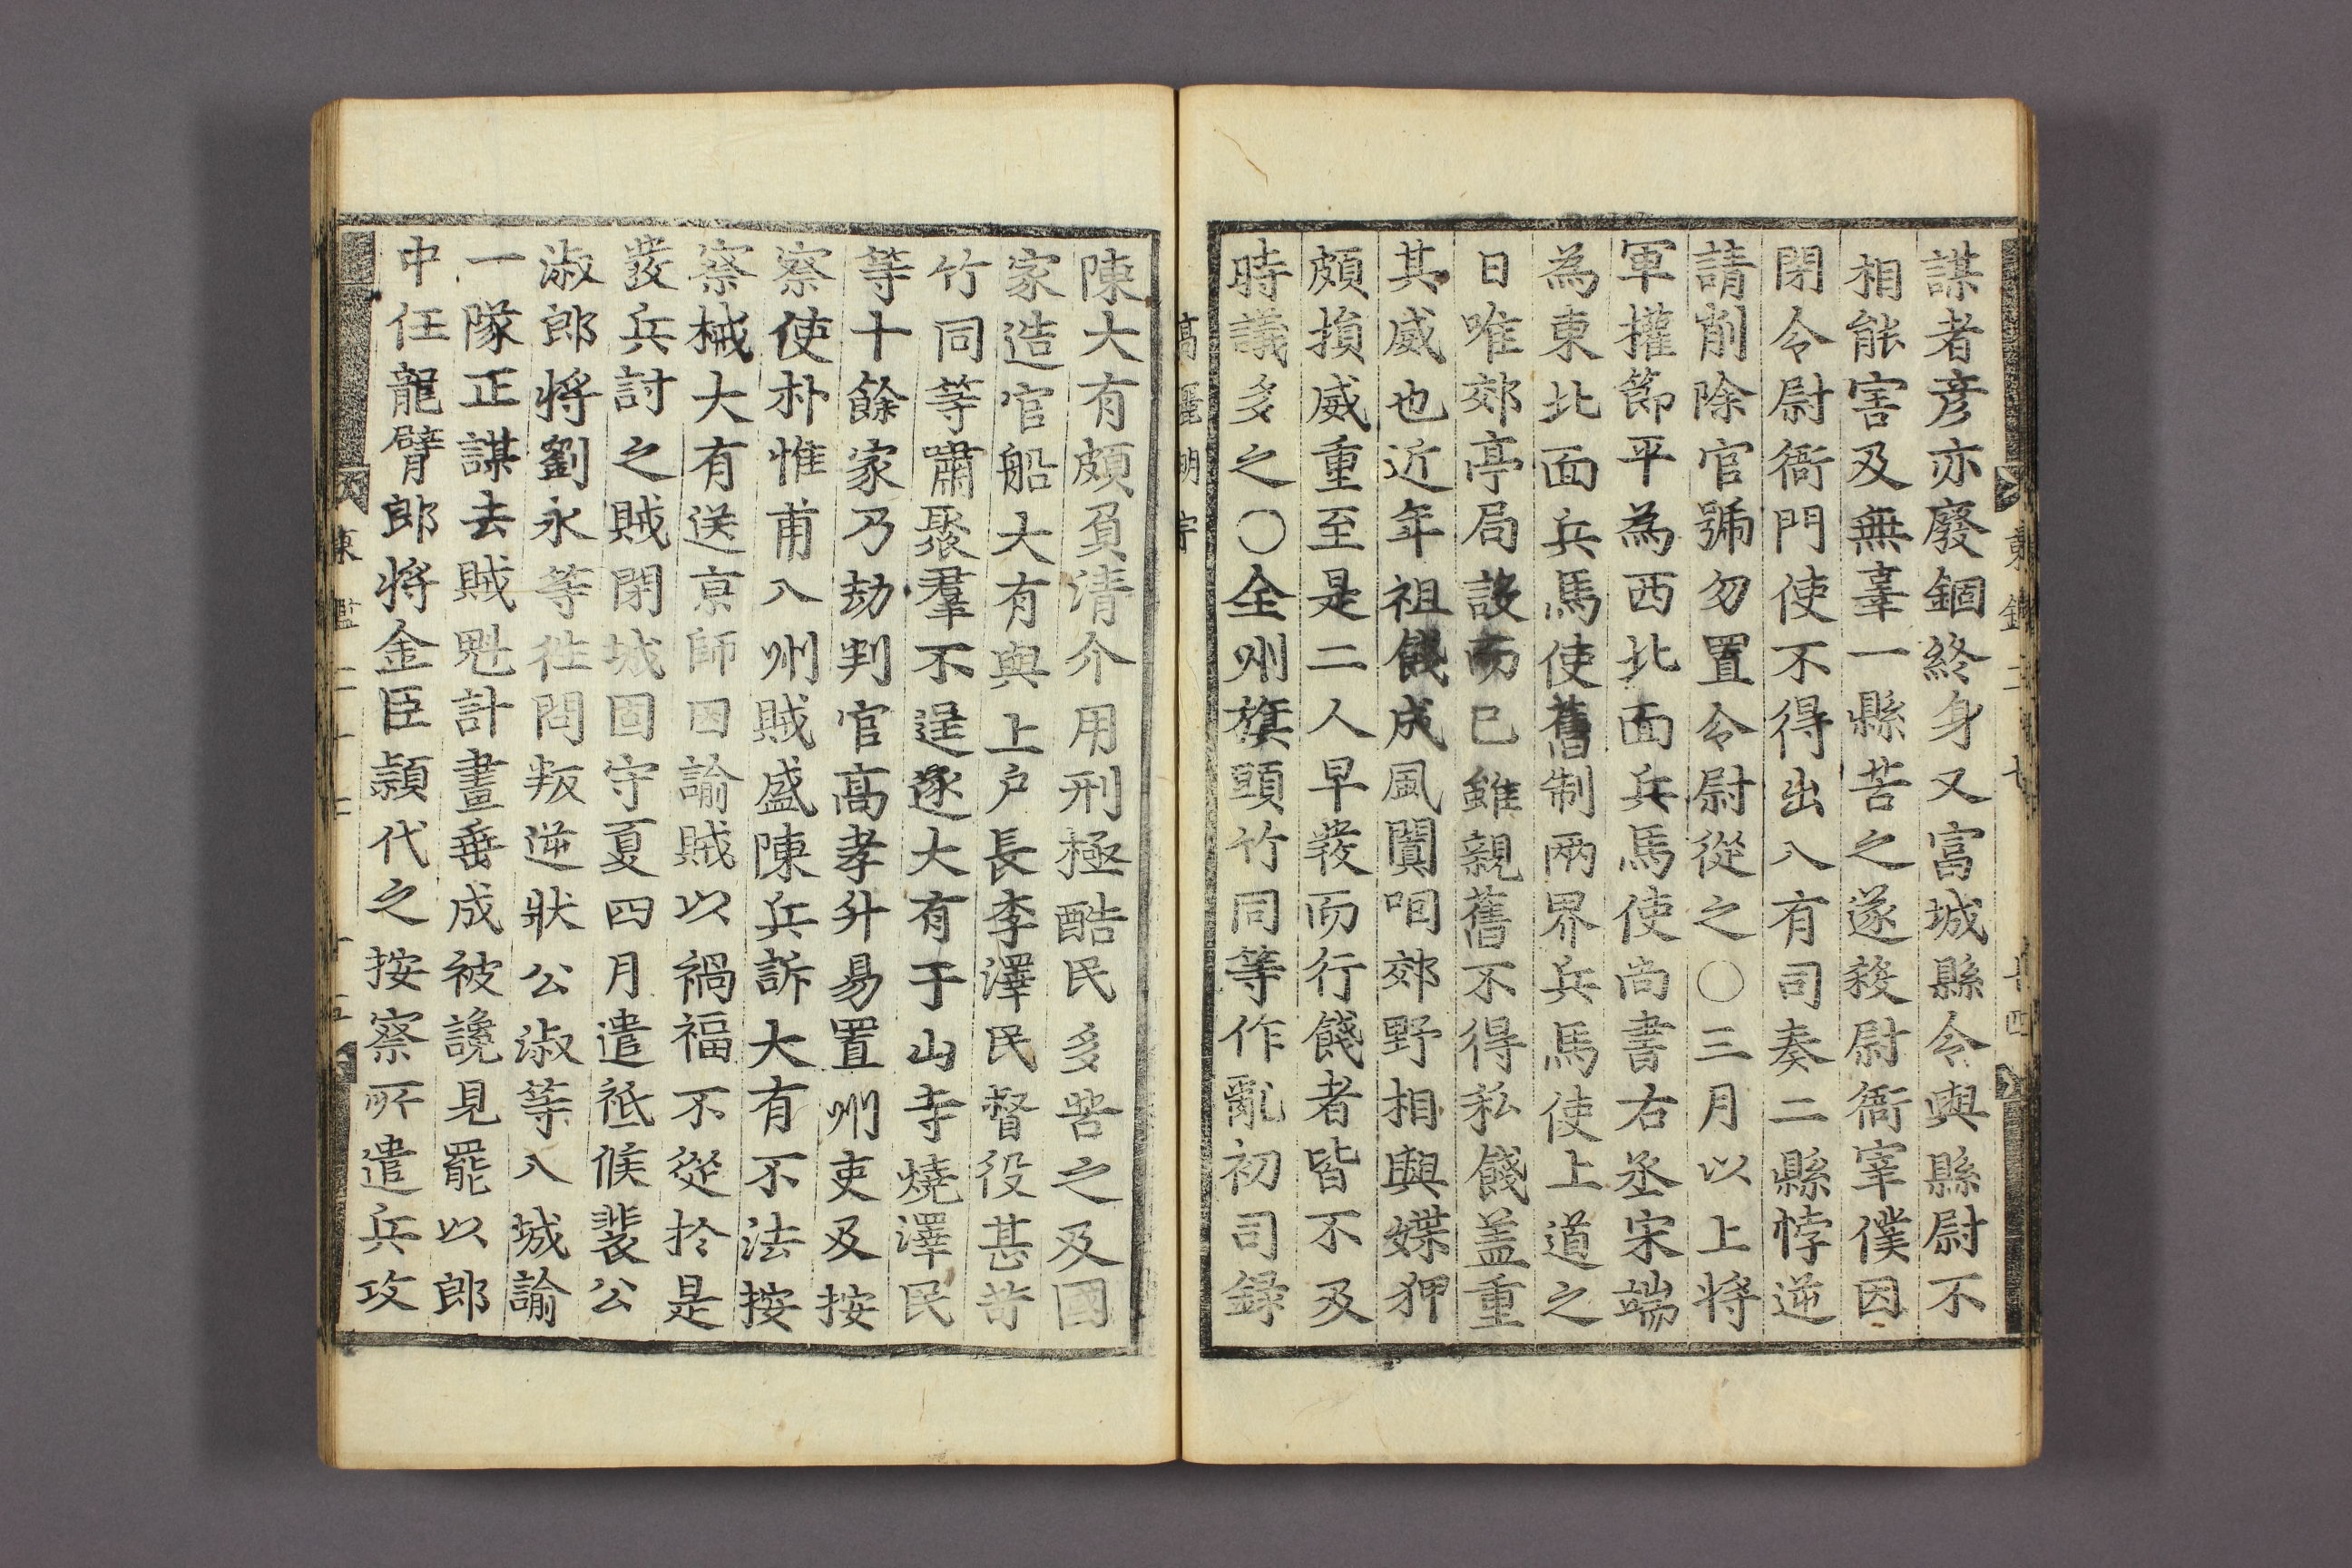 謀者彦亦廢錮終身又富城縣令與縣尉不
相能害及無辜一縣苦之遂殺尉衙宰僕因
閉令尉衙門使不得出入有司奏二縣悖逆
請削除官號勿置令尉從之○三月以上將
軍權節平為西北面兵馬使尚書右丞宋端
為東北面兵馬使舊制兩界兵馬使上道之
日唯郊亭局設而已雖親舊不得私餞盖重
其威也近年祖餞成風闐咽郊野相與媟狎
頗損威重至是二人早發而行餞者皆不及
時議多之○全州旗頭竹同等作亂初司錄
高麗明宗
陳大有頗負清介用刑極酷民多苦之及國
家造官船大有與上戶長李澤民督役甚苛
竹同等嘯聚羣不逞逐大有于山寺燒澤民
等十餘家乃劫判官高孝升易置州吏及按
察使朴惟甫入州賊盛陳兵訴大有不法按
察械大有送京師因諭賊以禍福不從於是
發兵討之賊閉城固守夏四月遣祗候裴公
淑郎將劉永等徃問叛逆狀公淑等入城諭
一隊正謀去賊魁計畫垂成被讒見罷以郎
中任龍臂郎將金臣穎代之按察所遣兵攻